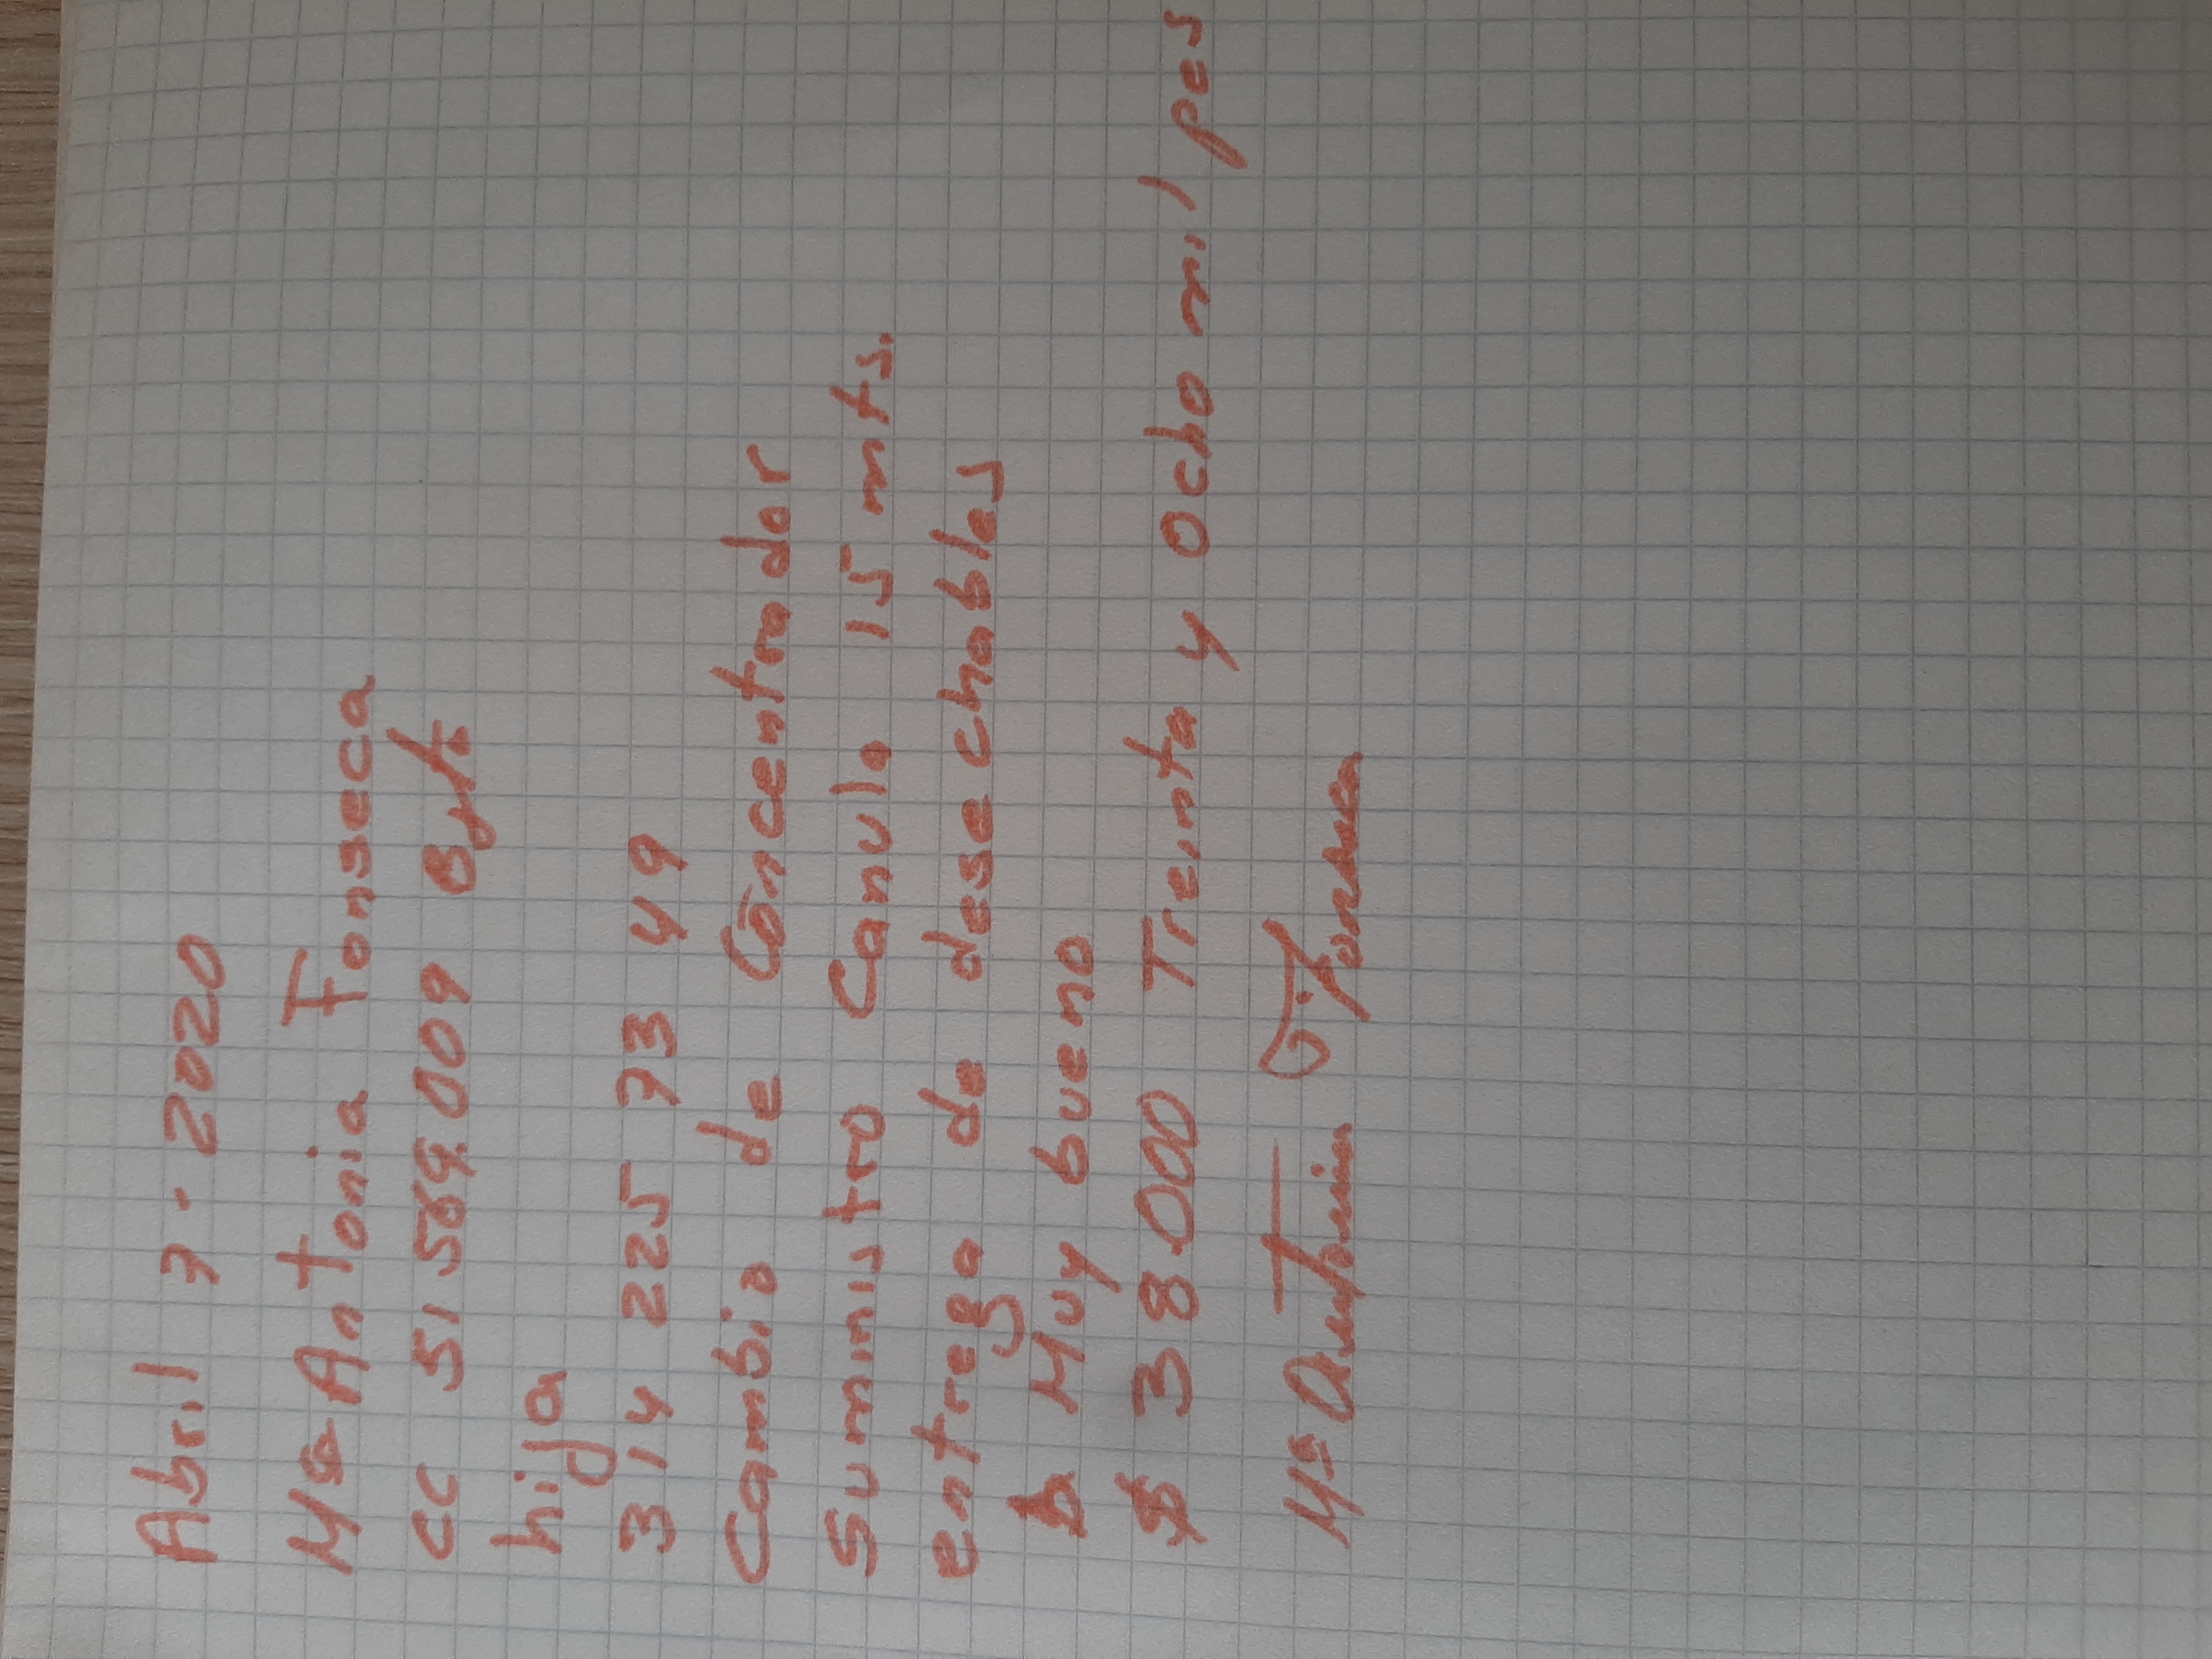 Abril 7 - 2020
Ma Antonia Fonseca
CC 51.569.009 Bgta
hija
314 225 73 49
Cambio de Concentrador
Suministro Canula 15 mts.
entrega de desechables
Muy bueno
$ 38.000 Treinta y Ocho mil pes
Ma Antonia Fonseca